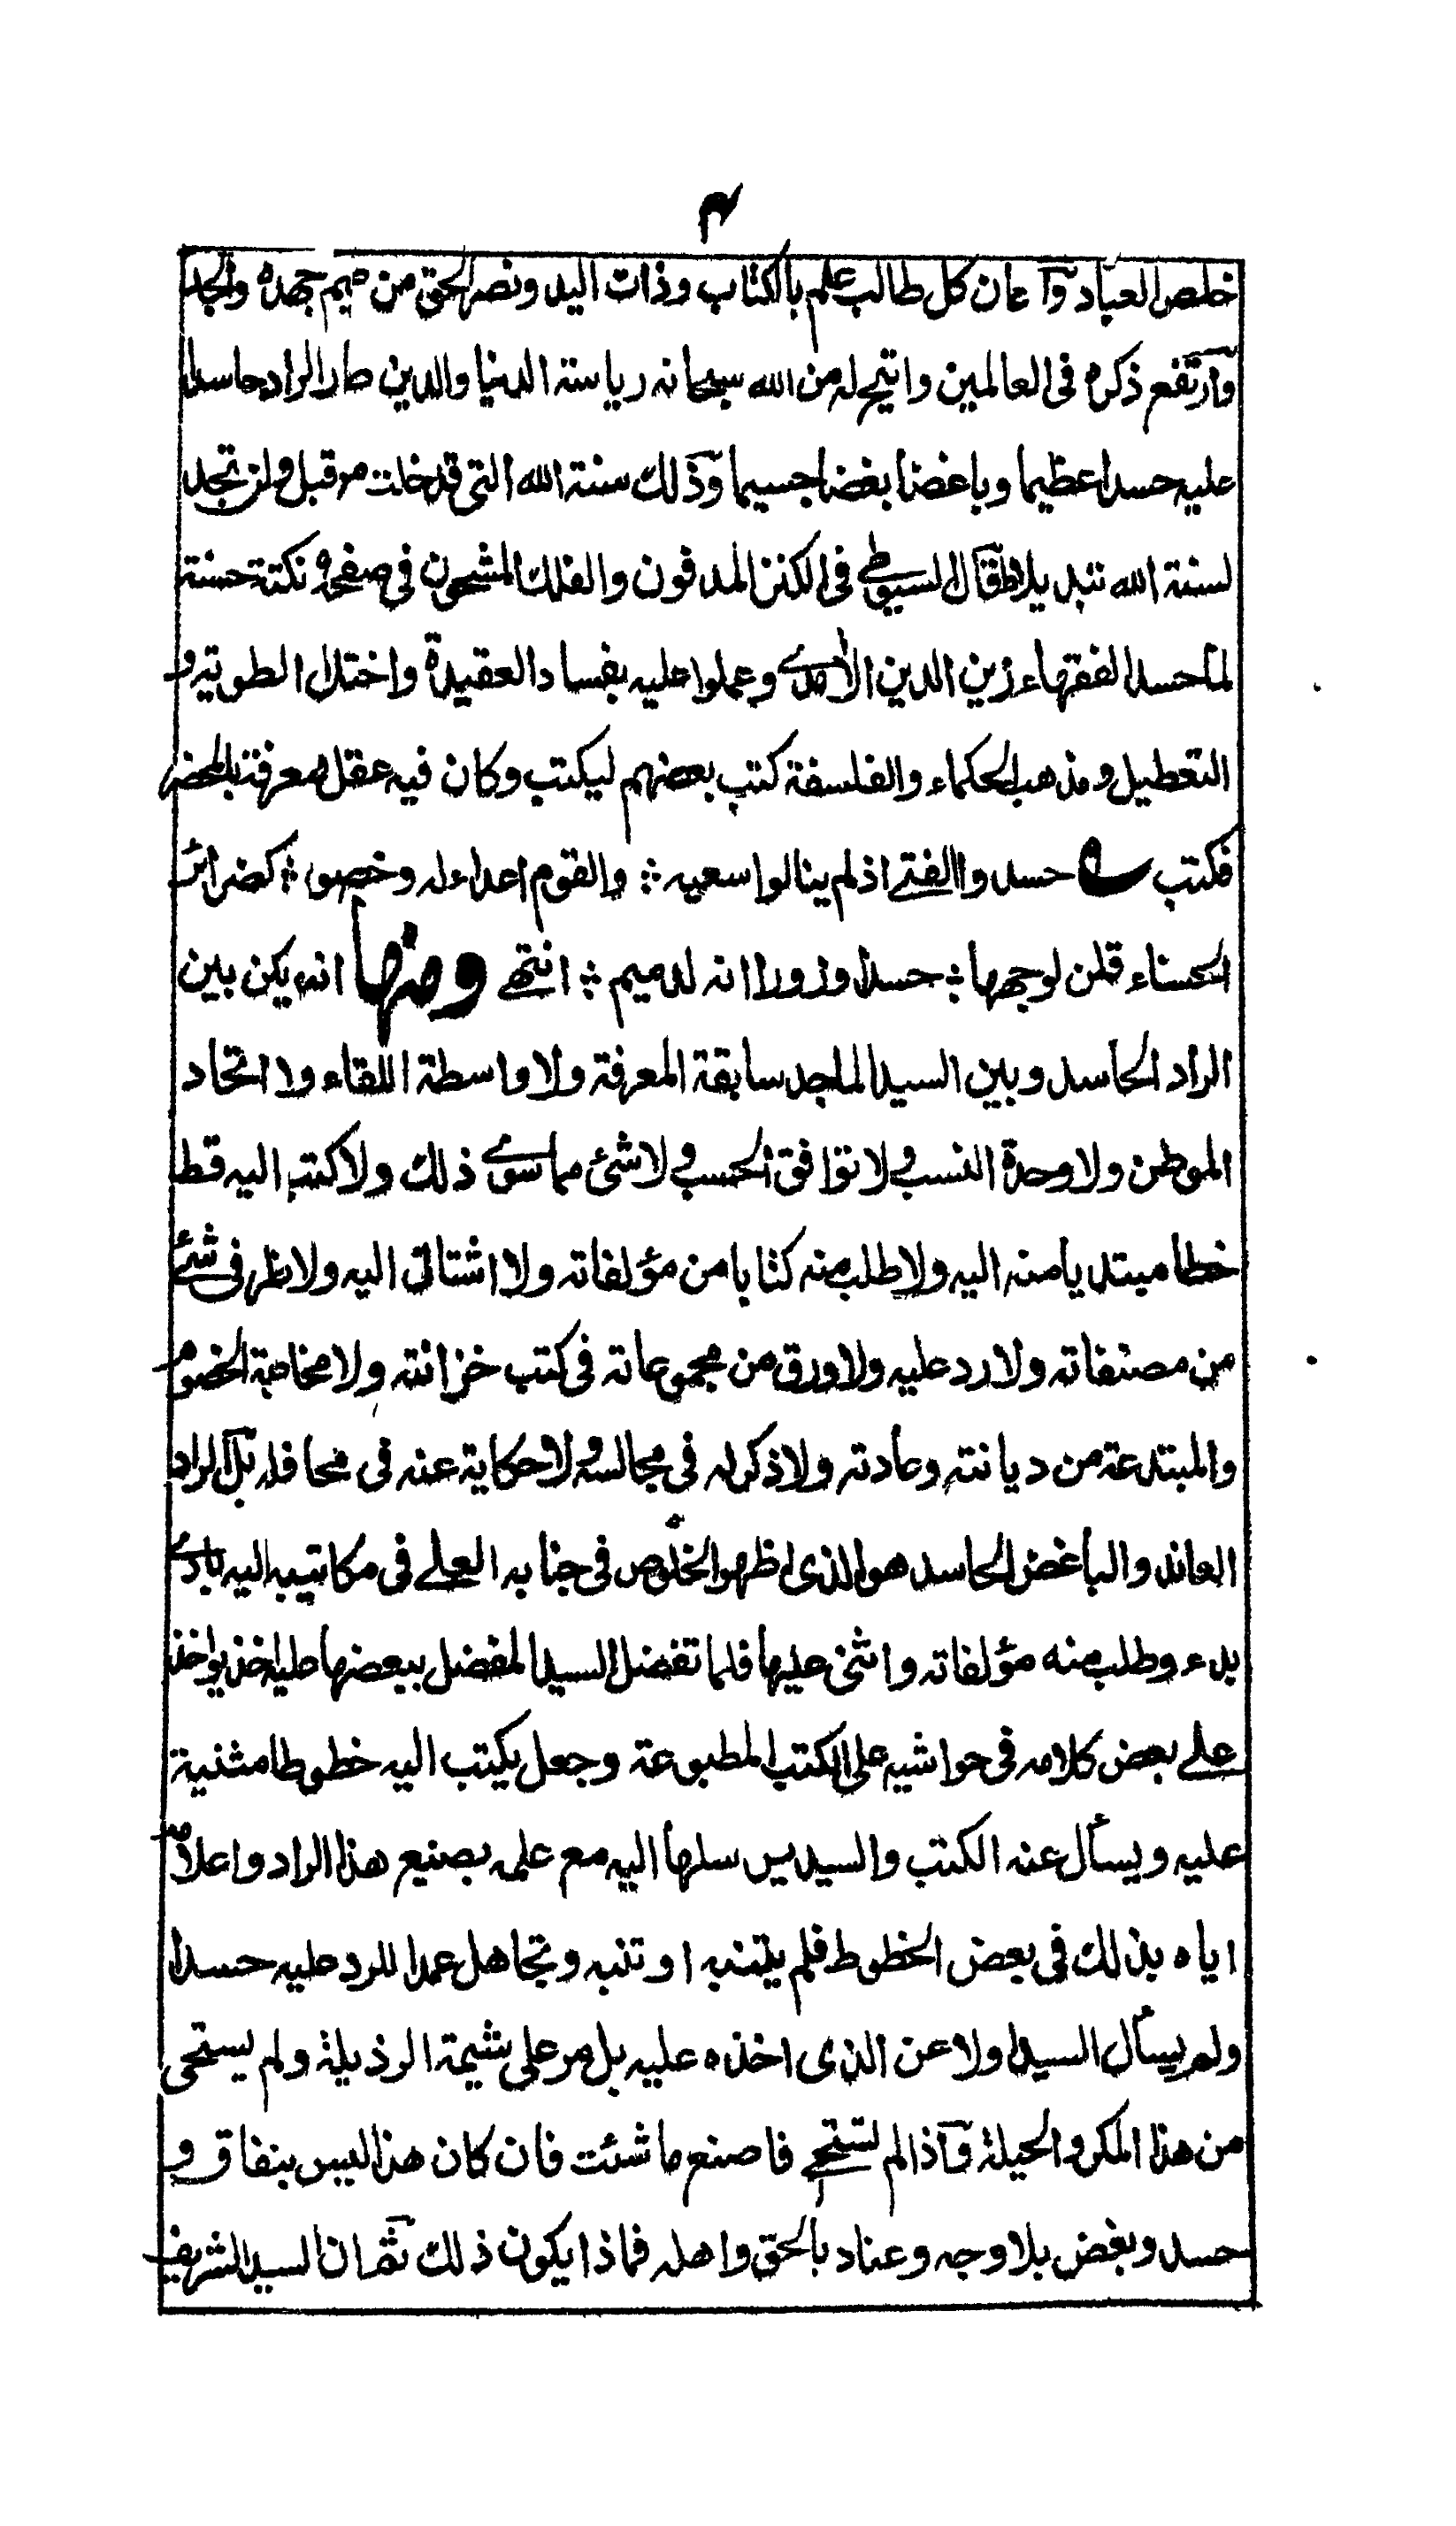 ۴
خلص العباد وآعان كل طالب علم بالكتاب وذات اليد ونصر الحق من صميم جهده والجد
وارتفع ذكره فى العالمين واتيح له من الله سبحانه رياسة الدنيا والدين صار الراد حاسدا
عليه حسدا عظيما وباغضا بغضا جسيما وذلك سنة الله التى قد خلت من قبل ولن تجد
لسنة الله تبديلا قال السيوطي فى الكنز المدفون والفلك المشحون فى صفحه نكتة حسنة
لما حسد الفقهاء زين الدين الآمدي وعملوا عليه بفساد العقيدة واختلال الطوية و
التعطيل ومذهب الحكماء والفلسفة كتب بعضهم ليكتب وكان فيه عقل ومعرفة بالمحضر
فكتب حسدوا الفتے اذ لم ينالوا سعيه ؞ والقوم اعداء له وخصوم ؞ كضرائر
الحسناء قلن لوجهها ؞ حسدا وزورا انه لدميم ؞ انتهے ومنها انه لم يكن بين
الراد الحاسد وبين السيد الماجد سابقة المعرفة ولا واسطة اللقاء ولا اتحاد
الموطن ولا وحدة النسب ولا توافق الحسب ولا شئ مما سوے ذلك ولا كتب اليه قط
خطا مبتديا منه اليه ولا طلب منه كتابا من مؤلفاته ولا اشتاق اليه ولا نظر فى شئے
من مصنفاته ولا رد عليه ولا ورق من مجموعاته فى كتب خزانته ولا مخاصمة الخضوم
والمبتدعة من ديانته وعادته ولا ذكر له فى مجالسه ولا حكاية عنه فى محافله بل الراد
العاند والباغض الحاسد هو الذى اظهر الخلوص فى جنابه العلے فى مكاتيبه اليه بادے
بدء وطلب منه مؤلفاته واثنى عليها فلما تفضل السيد المفضل ببعضها عليه اخذ يواخذ
علے بعض كلامه فى حواشيه على الكتب المطبوعة وجعل يكتب اليه خطوطا مثنية
عليه ويسأل عنه الكتب والسيد يرسلها اليه مع علمه بصنيع هذا الراد واعلامه
اياه بذلك فى بعض الخطوط فلم يتنبه او تنبه وتجاهل عمدا للرد عليه حسدا
ولم يسأل السيد اولا عن الذى اخذه عليه بل مر على شيمة الرذيلة ولم يستحى
من هذا المكر والحيلة وآذا لم تستحے فاصنع ما شئت فان كان هذا ليس بنفاق و
حسد وبغض بلا وجه وعناد بالحق واهله فماذا يكون ذلك ثم ان السيد الشريف